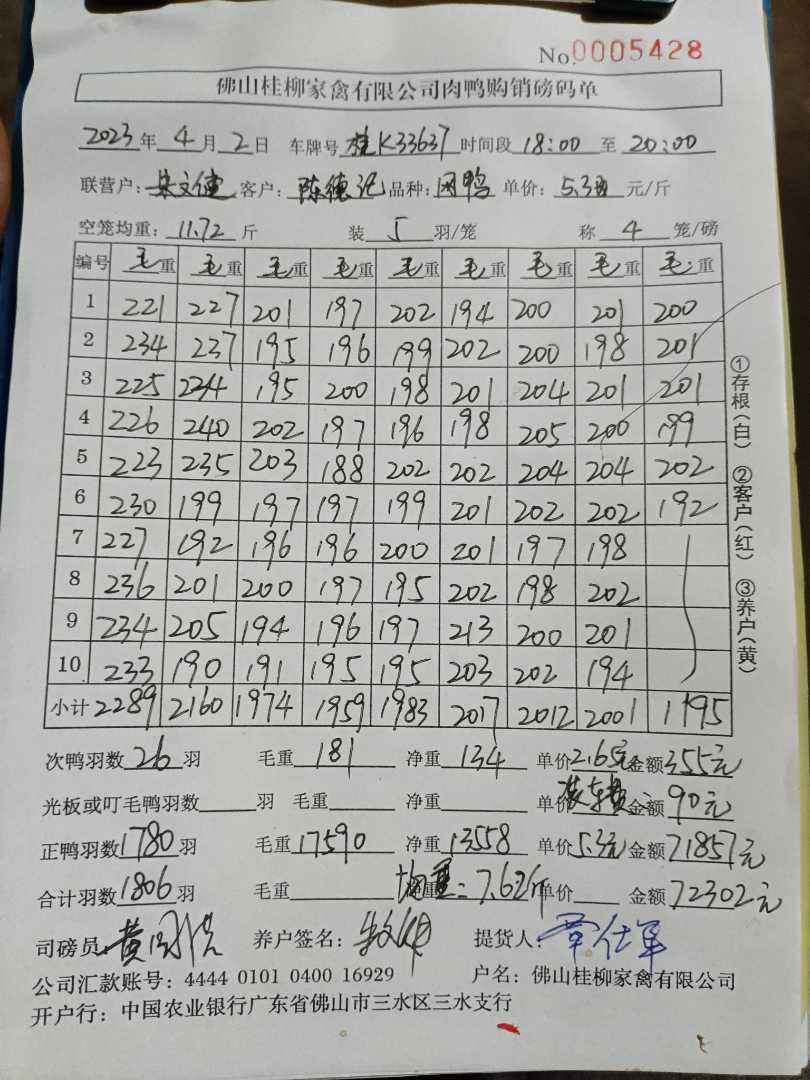 No.0005428
佛山桂柳家禽有限公司肉鸭购销磅码单
2023年4月2日 车牌号桂K33637时间段18:00至20:00
联营户:朱文健 客户:陈德记 品种:肉鸭 单价:5.3 元/斤
空笼均重:11.72斤 装5羽/笼 称4笼/磅
编号 毛重 毛重 毛重 毛重 毛重 毛重 毛重 毛重 毛重
1 221 227 201 197 202 194 200 201 200
2 234 237 195 196 199 202 200 198 201
3 225 224 195 200 198 201 204 201 201
4 226 240 202 197 196 198 205 200 199
5 223 235 203 188 202 202 204 204 202
6 230 199 197 197 199 201 202 202 192
7 227 192 196 196 200 201 197 198
8 236 201 200 197 195 202 198 202
9 234 205 194 196 197 213 200 201
10 233 190 191 195 195 203 202 194
小计 2289 2160 1974 1959 1983 2017 2012 2001 1195
①存根(白) ②客户(红) ③养户(黄)
次鸭羽数26羽 毛重181 净重134 单价2.65元 金额355元
光板或叮毛鸭羽数 羽 毛重 净重 单价装车费 金额90元
正鸭羽数1780羽 毛重17590 净重13558 单价5.3元 金额71857元
合计羽数1806羽 毛重 均重:7.62斤 单价 金额72302元
司磅员: 养户签名: 提货人:
公司汇款账号:4444 0101 0400 16929 户名:佛山桂柳家禽有限公司
开户行:中国农业银行广东省佛山市三水区三水支行